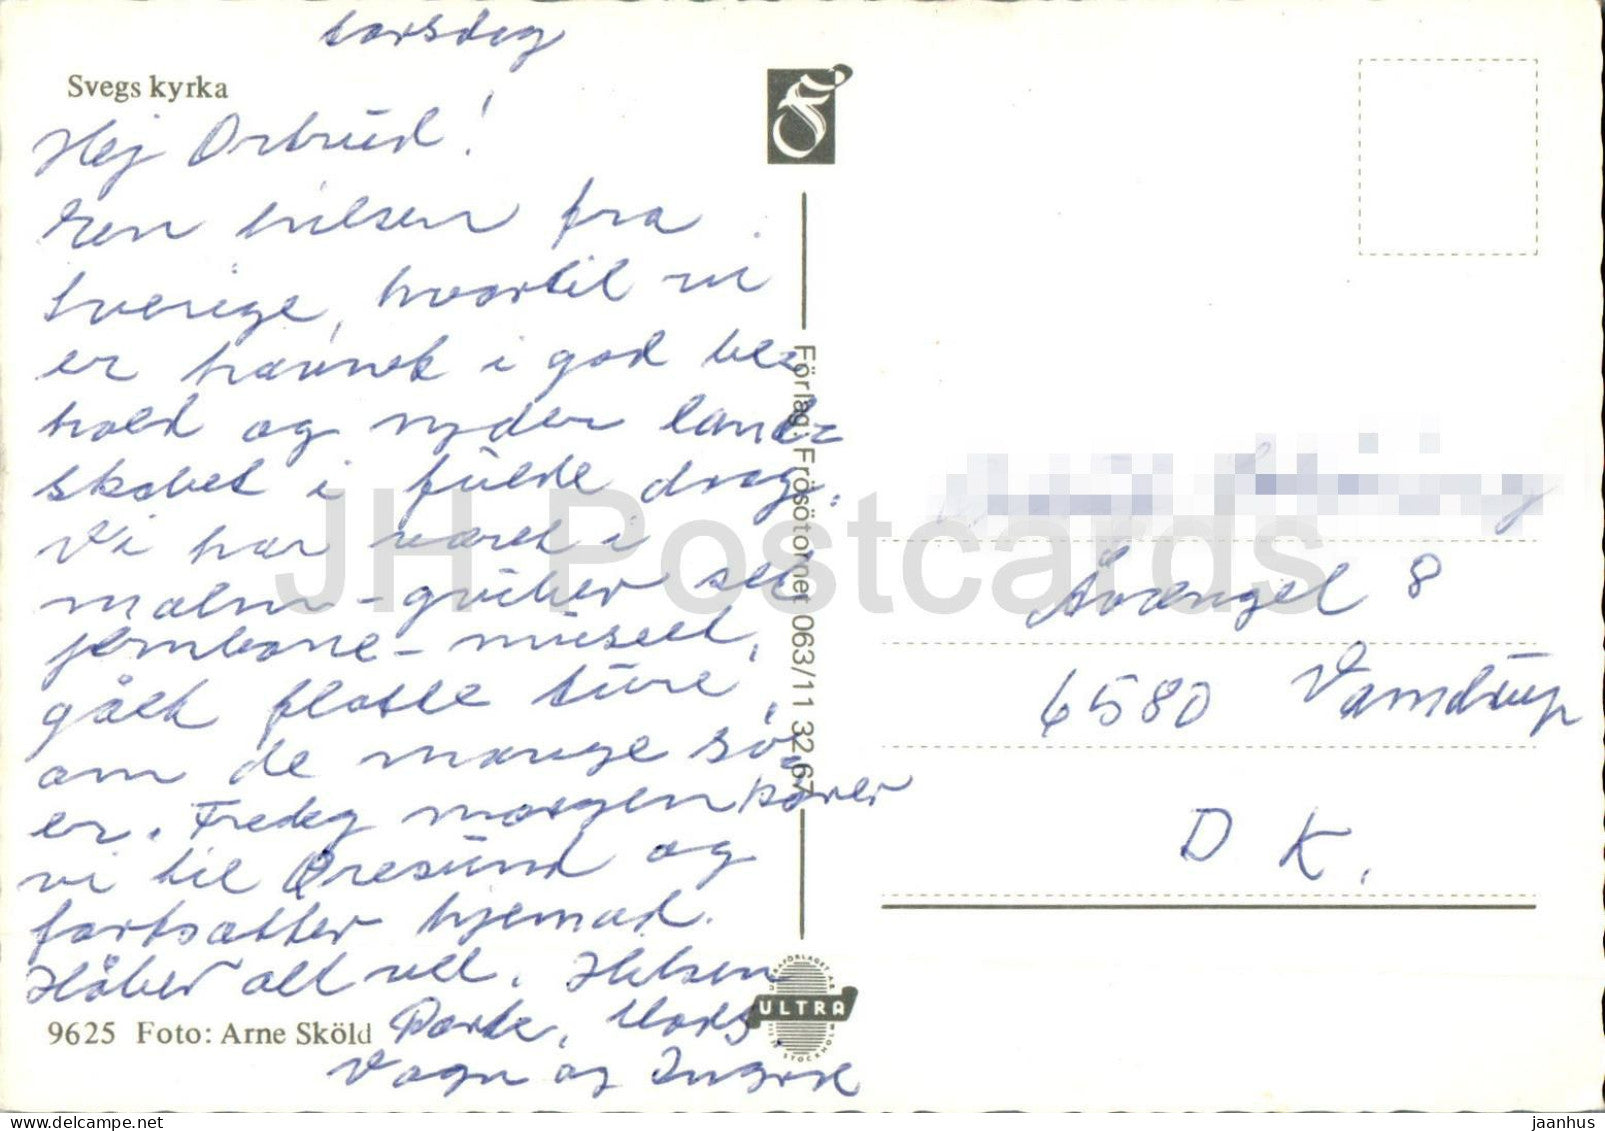 torsdag
Svegs kyrka
Hej Ortrud!
Een hilsen fra
Sverige, hvortil vi
er havnet i god be=
hold og nyder land=
skabet i fulde drag.
Vi har været i
malm-gruber set
jernbane-museet,
gået flotte ture,
om de mange sø
er. Fredag morgen kører
vi til Øresund og
fortsætter hjemad.
Håber alt vel. Hilsen
9625 Foto: Arne Sköld
Mads.
Vagn og
Förlag: Frösötornet 063/11 32 67
ULTRAFÖRLAGET A.B.
ULTRA
STOCKHOLM
Åvænget 8
6580 Vamdrup
DK.
JH Postcards
jaanhus - delcampe.net